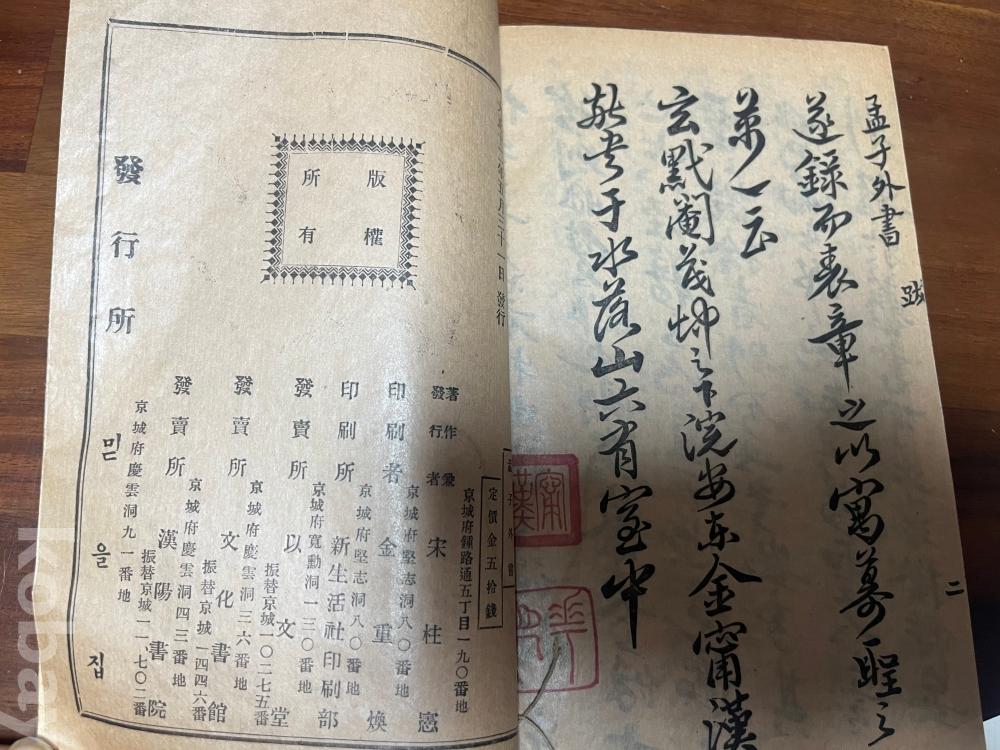 孟子外書 跋 二
遂錄而表章之以寓慕聖之
萬一云
玄黓閹茂姤之下浣安東金甯漢
敬書于水落山六有室中
甯漢
月三十一日 發行
版權
所有
定價金五拾錢
著作兼發行者
京城府鍾路通五丁目一九〇番地
宋柱憲
印刷者
京城府堅志洞八〇番地
金重煥
印刷所
京城府堅志洞八〇番地
新生活社印刷部
發賣所
京城府寬勳洞一三〇番地
以文堂
振替京城一〇二七五番
發賣所
京城府慶雲洞三六番地
文化書館
振替京城一四四六番
發賣所
京城府慶雲洞四三番地
漢陽書院
振替京城一一七〇二番
京城府慶雲洞九一番地
發行所
믿을집
kobay